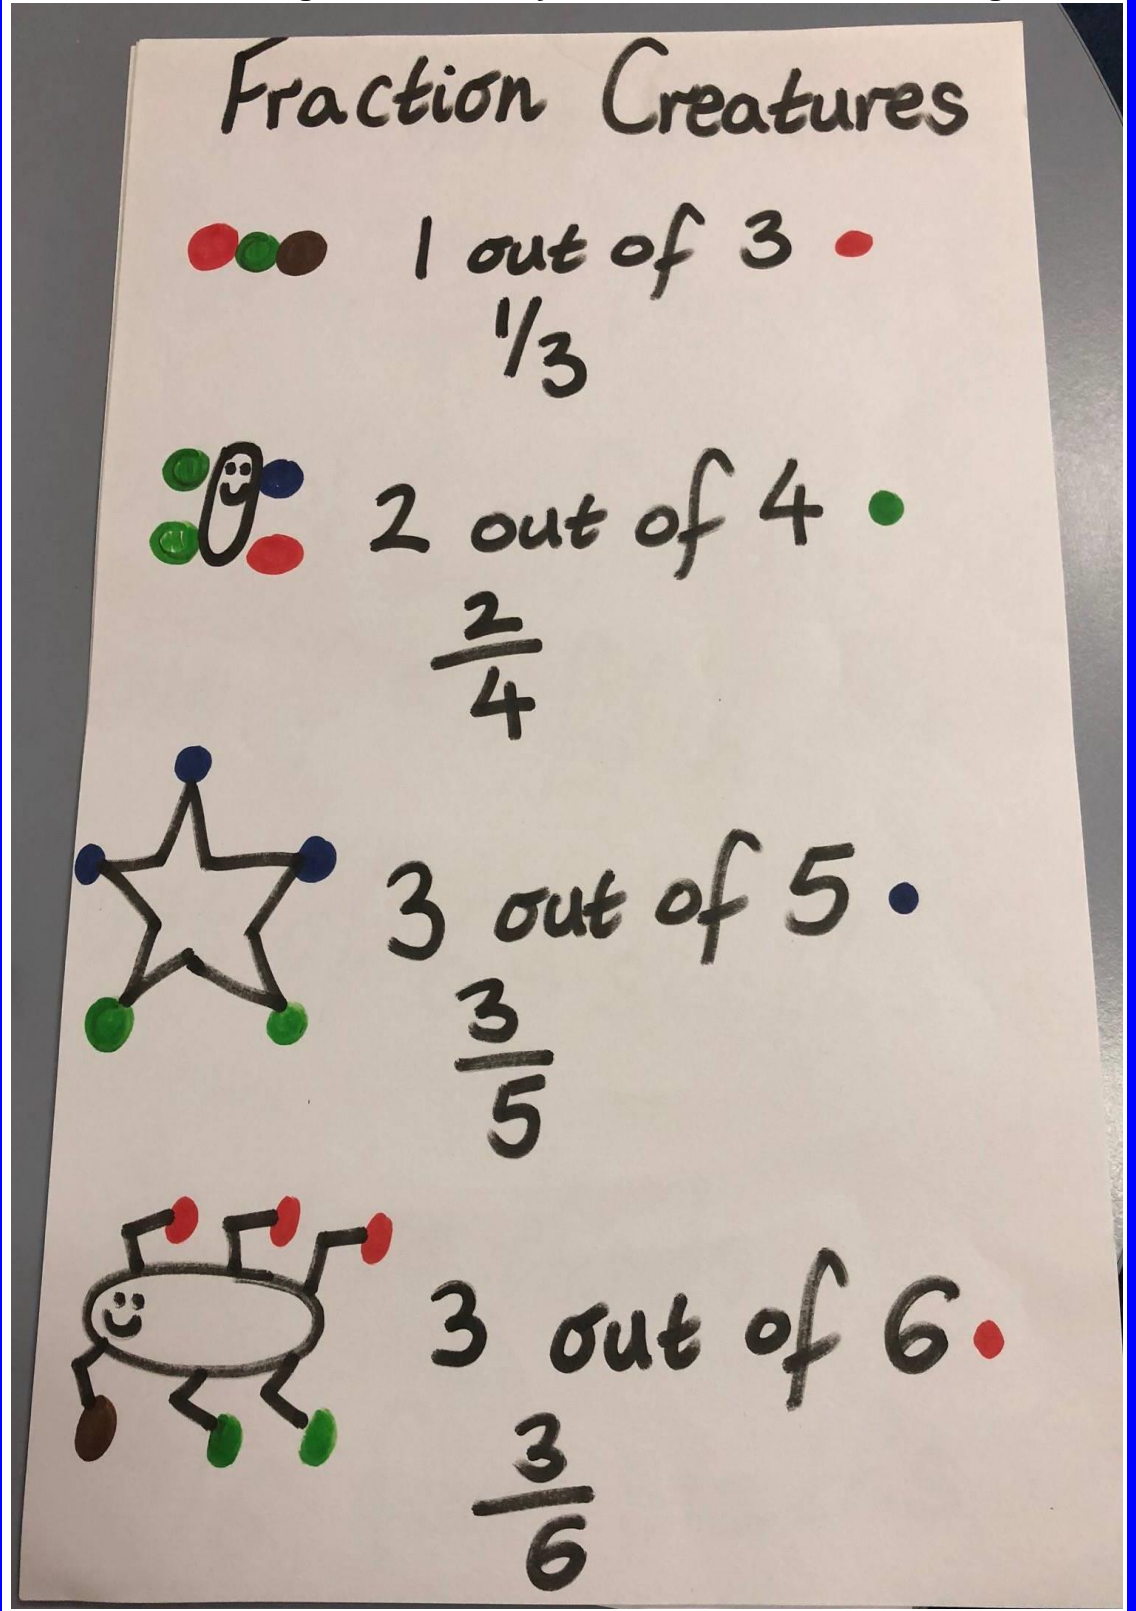 Fraction Creatures
1 out of 3
1/3
2 out of 4
2
4
3 out of 5
3
5
3 out of 6
3
6